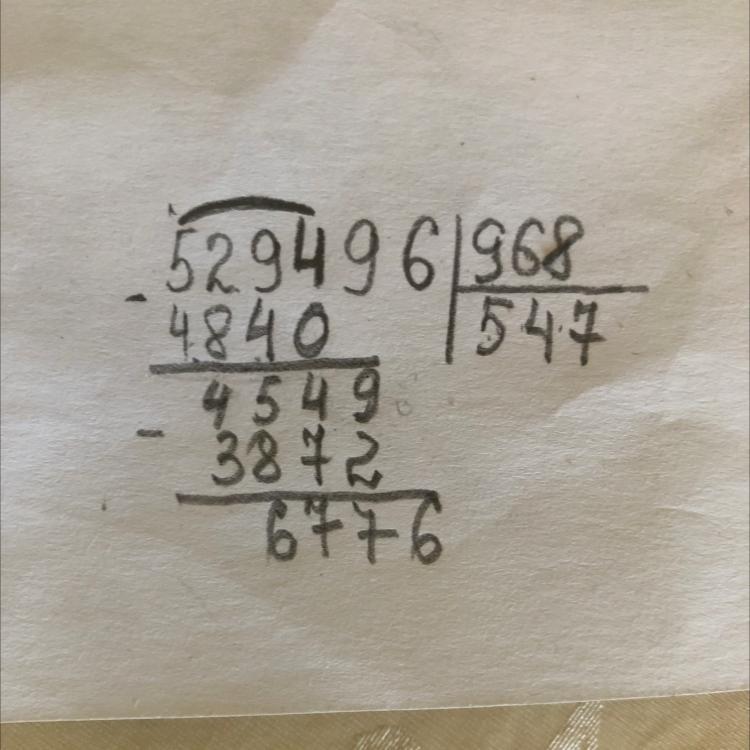 529496 968
- 4840 547
4549
- 3872
6776